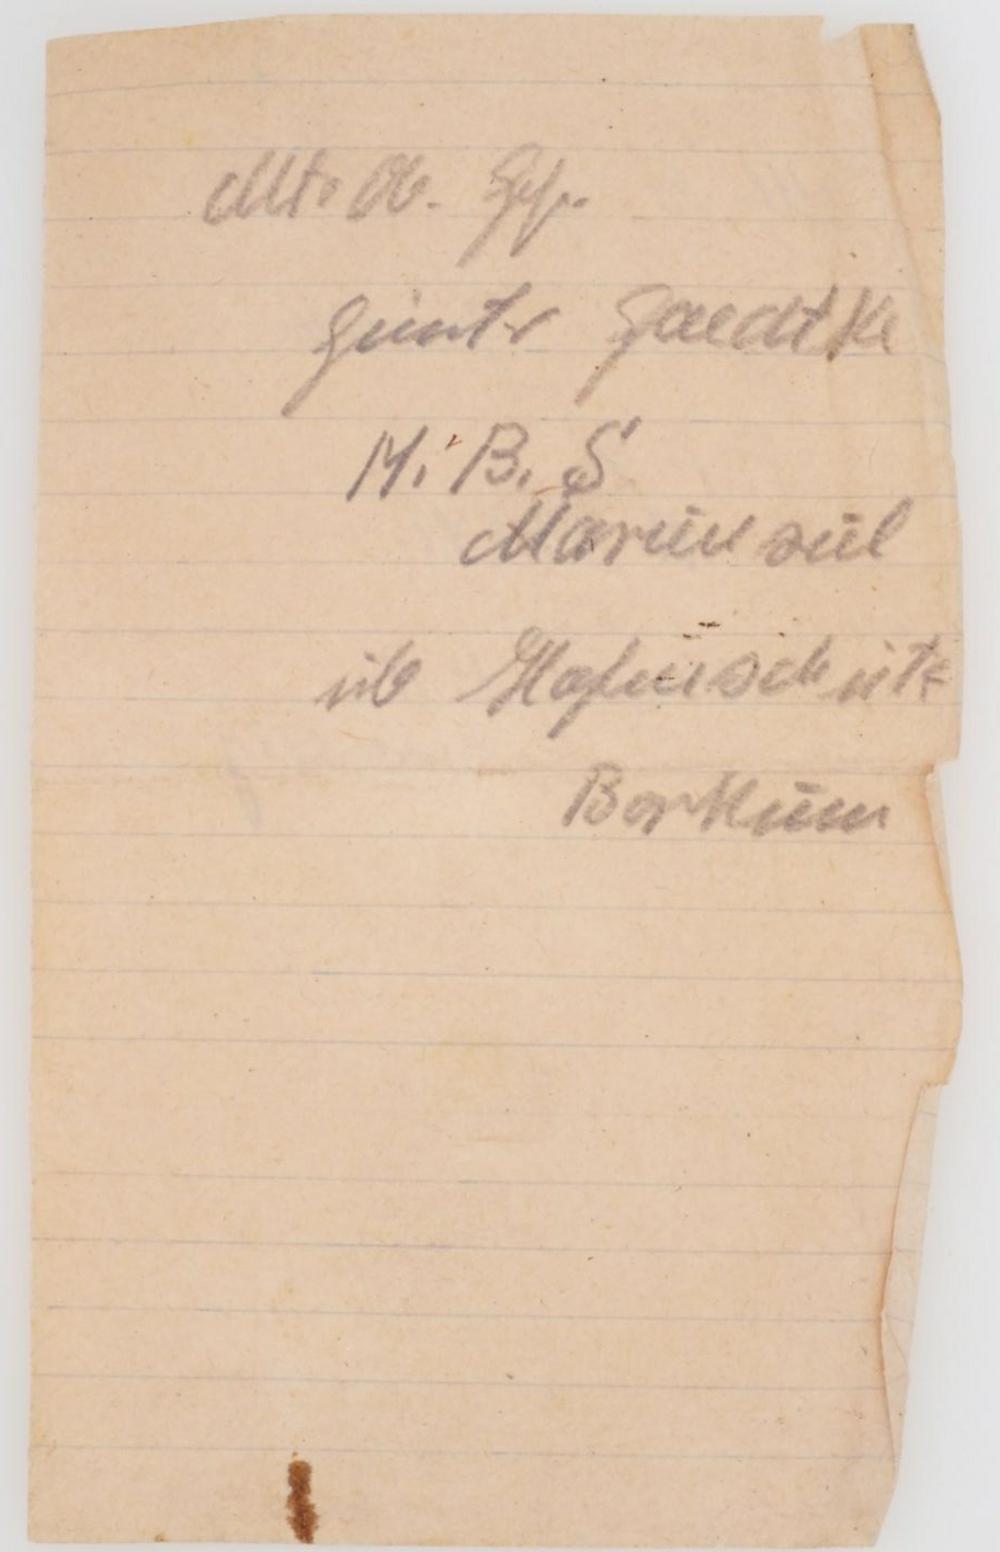 Mt. Ob. Gfr.
Günter Gaedtke
M. B. S
Mariensiel
üb Hafenschutz
Borkum